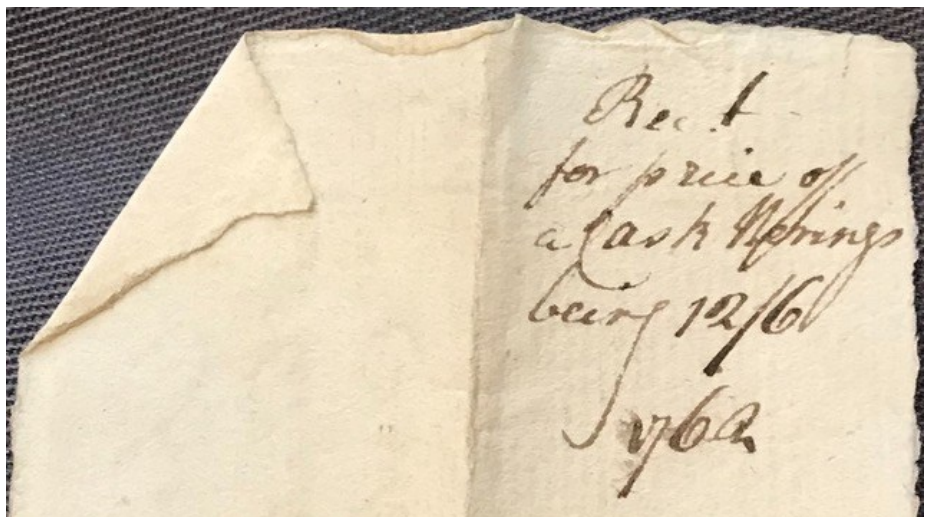 Rect
for price of
a Cask Herings
being 12/6
1762